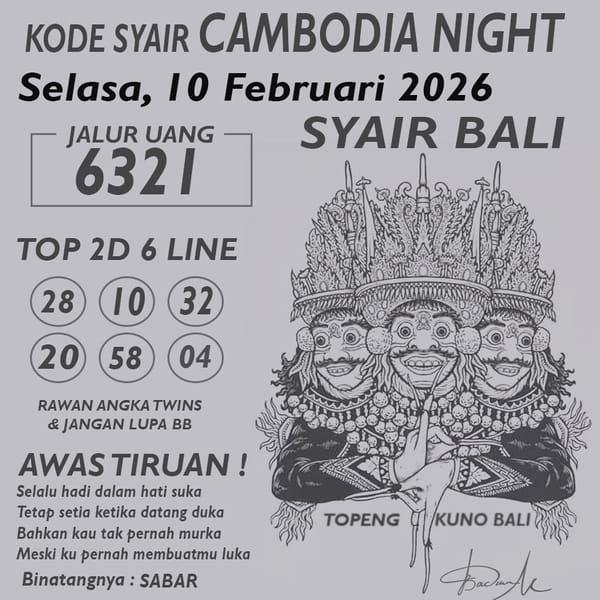 KODE SYAIR CAMBODIA NIGHT
Selasa, 10 Februari 2026
JALUR UANG
6321
SYAIR BALI
TOP 2D 6 LINE
28 10 32
20 58 04
RAWAN ANGKA TWINS
& JANGAN LUPA BB
AWAS TIRUAN !
Selalu hadi dalam hati suka
Tetap setia ketika datang duka
Bahkan kau tak pernah murka
Meski ku pernah membuatmu luka
Binatangnya : SABAR
TOPENG KUNO BALI